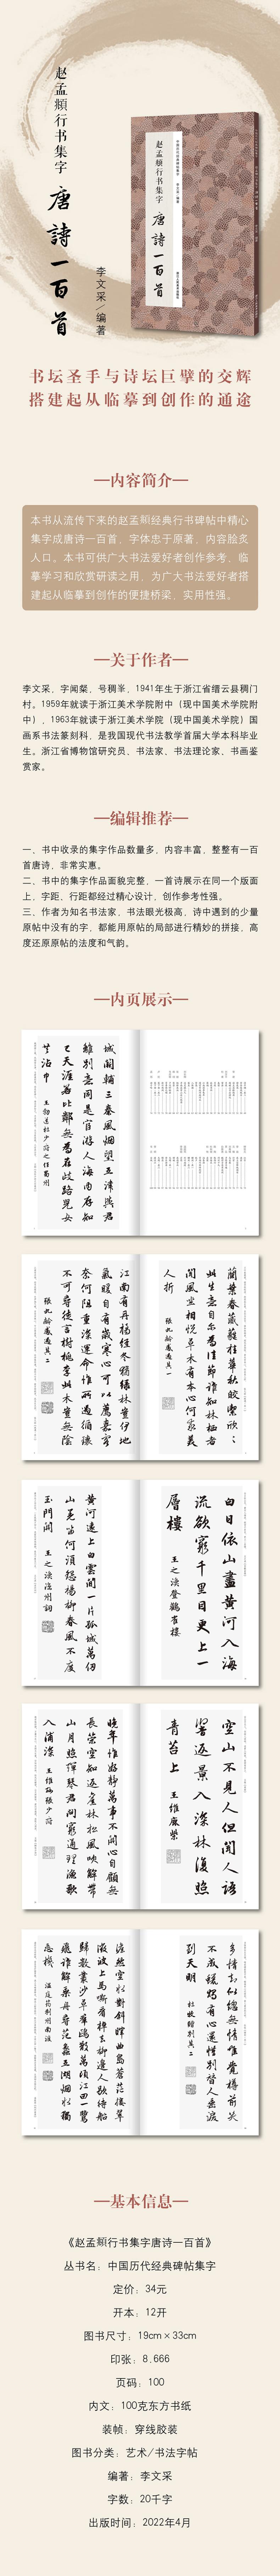 赵孟頫行书集字
唐詩一百首
李文采／编著
赵孟頫行书集字
唐詩一百首
书坛圣手与诗坛巨擘的交辉
搭建起从临摹到创作的通途
—内容简介—
本书从流传下来的赵孟頫经典行书碑帖中精心
集字成唐诗一百首，字体忠于原著，内容脍炙
人口。本书可供广大书法爱好者创作参考，临
摹学习和欣赏研读之用，为广大书法爱好者搭
建起从临摹到创作的便捷桥梁，实用性强。
—关于作者—
李文采，字闻粲，号稠峯，1941年生于浙江省缙云县稠门
村。1959年就读于浙江美术学院附中（现中国美术学院附
中），1963年就读于浙江美术学院（现中国美术学院）国
画系书法篆刻科，是我国现代书法教学首届大学本科毕业
生。浙江省博物馆研究员、书法家、书法理论家、书画鉴
赏家。
—编辑推荐—
一、书中收录的集字作品数量多，内容丰富，整整有一百
首唐诗，非常实惠。
二、书中的集字作品面貌完整，一首诗展示在同一个版面
上，字距、行距都经过精心设计，创作参考性强。
三、作者为知名书法家，书法眼光极高，诗中遇到的少量
原帖中没有的字，都能用原帖的局部进行精妙的拼接，高
度还原原帖的法度和气韵。
—内页展示—
城闕輔三秦風烟望五津與君
離別意同是宦游人海内存知
己天涯若比鄰無為在歧路兒女
共沾巾
王勃送杜少府之任蜀州
蘭葉春葳蕤桂華秋皎潔欣〻
此生意自尔為佳節誰知林栖者
聞風坐相悦草木有本心何求美
人折
張九齡感遇其一
江南有丹橘經冬猶绿林豈伊地
氣暖自有歲寒心可以薦嘉客
奈何阻重深運命惟所遇循環
不可尋徒言樹桃李此木豈無陰
張九齡感遇其二
白日依山盡黄河入海
流欲窮千里目更上一
層樓
王之涣登鸛雀樓
黄河遠上白雲間一片孤城萬仞
山羌笛何須怨楊柳春風不度
玉門關
王之涣凉州詞
空山不見人但聞人語
響返景入深林復照
青苔上
王維鹿柴
晚年惟好静萬事不關心自顧無
長策空知返舊林松風吹解帶
山月照彈琴君問窮通理漁歌
入浦深
王維酬張少府
多情却似總無情唯覺樽前笑
不成蠟燭有心還惜别替人垂淚
到天明
杜牧贈别其二
澹然空水對斜暉曲島蒼茫接翠
微波上馬嘶看棹去柳邊人歇待船
歸數叢沙草群鷗散萬頃江田一鷺
飛誰解乘舟尋范蠡五湖烟水獨
忘機
温庭筠利州南渡
—基本信息—
《赵孟頫行书集字唐诗一百首》
丛书名：中国历代经典碑帖集字
定价：34元
开本：12开
图书尺寸：19cm×33cm
印张：8.666
页码：100
内文：100克东方书纸
装帧：穿线胶装
图书分类：艺术/书法字帖
编著：李文采
字数：20千字
出版时间：2022年4月